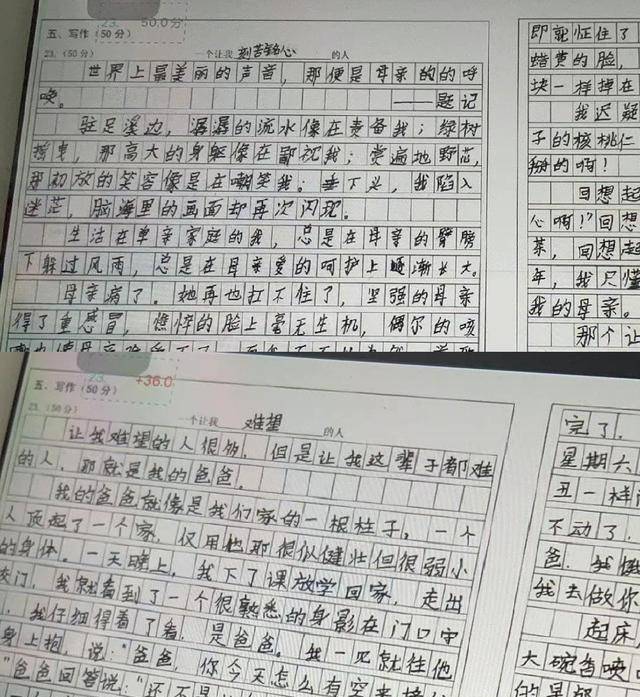 23. 50.0分
五、写作（50分）
23.（50分） 一个让我 刻苦铭心 的人
世界上最美丽的声音，那便是母亲的的呼
唤。 ——题记
驻足溪边，潺潺的流水像在责备我；绿树
摇曳，那高大的身躯像在鄙视我；赏遍地野花，
那初放的笑容像是在嘲笑我。垂下头，我陷入
迷茫，脑海里的画面却再次闪现。
生活在单亲家庭的我，总是在母亲的臂膀
下躲过风雨，总是在母亲爱的呵护上逐渐长大。
母亲病了。她再也扛不住了，坚强的母亲
得了重感冒，憔悴的脸上毫无生机，偶尔的咳
即就怔住了
蜡黄的脸，
块一样掉在
我迟疑
子的核桃仁
掰的啊！
回想起
心啊！"回想
茶，回想起
年，我只懂
我的母亲。
那个让
23. +36.0
五、写作（50分）
23.（50分） 一个让我 难望 的人
让我难望的人很多，但是让我这辈子都难
的人，那就是我的爸爸。
我的爸爸就像是我们家的一根柱子。一个
人顶起了一个家，仅用他那很似健壮但很弱小
的身体。一天晚上，我下了课放学回家，走出
校门，我就看到了一个很熟悉的身影在门口守
，我仔细得看了看，是爸爸。我一见就往他
身上抱，说："爸爸，你今天怎么有空来接
"爸爸回答说："还不是
完了，
星期六
丑一样
不动了，
爸，我
我去做你
起床
大碗告唤
的是